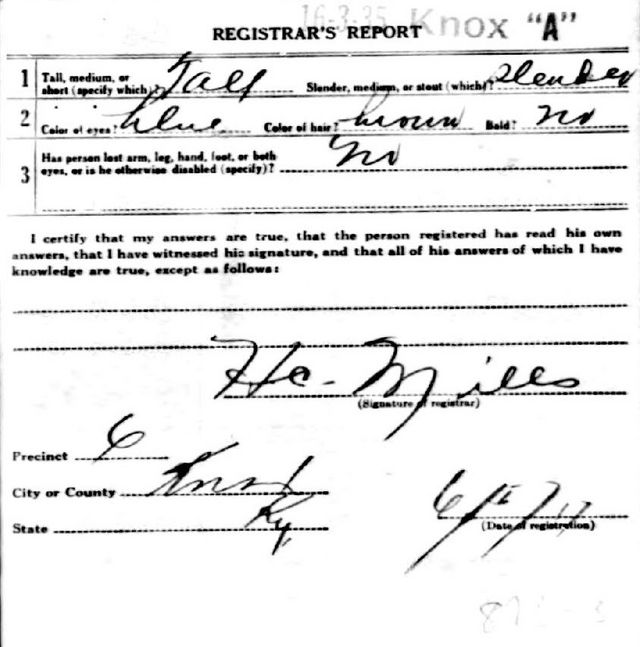 16-3-35 Knox "A"
REGISTRAR'S REPORT
1 Tall, medium, or short (specify which)? Tall Slender, medium, or stout (which)? Slender
2 Color of eyes? blue Color of hair? brown Bald? no
3 Has person lost arm, leg, hand, foot, or both
eyes, or is he otherwise disabled (specify)? no
I certify that my answers are true, that the person registered has read his own
answers, that I have witnessed his signature, and that all of his answers of which I have
knowledge are true, except as follows:
Hc. Mills
(Signature of registrar)
Precinct 6
City or County Knox
State Ky.
(Date of registration)